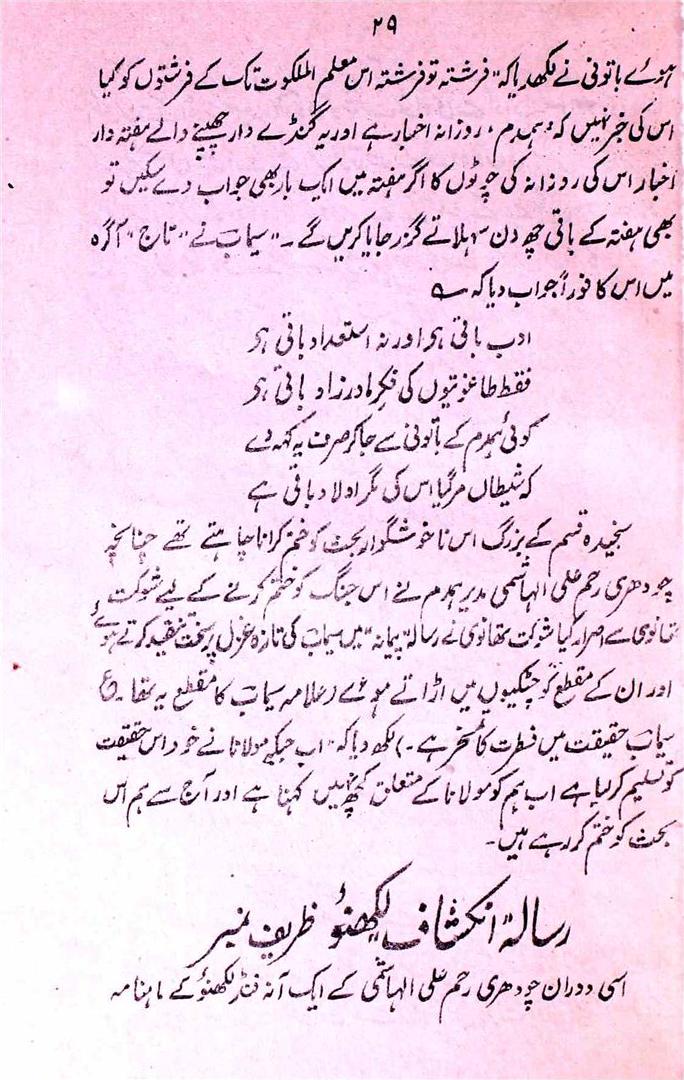 ۲۹
ہوئے باتونی نے لکھدیا کہ "فرشتہ تو فرشتہ اس معلم الملکوت تک کے فرشتوں کو کیا
اس کی خبر نہیں کہ "ہمدم" روزانہ اخبار ہے اور یہ گنڈے دار چھپنے والے ہفتہ دار
اخبار اس کی روزانہ کی چوٹوں کا اگر ہفتہ میں ایک بار بھی جواب دے سکیں تو
بھی ہفتہ کے باقی چھ دن سہلاتے گزر جایا کریں گے۔" سیماب نے "تاج" آگرہ
میں اس کا فوراً جواب دیا کہ ؎
ادب باقی ہی اور نہ استعداد باقی ہی
فقط طاغوتیوں کی فکرِ مادر زاد باقی ہی
کوئی ہمدم کے باتونی سے جا کر صرف یہ کہدے
کہ شیطاں مر گیا اس کی مگر اولاد باقی ہے
سنجیدہ قسم کے بزرگ اس ناخوشگوار بحث کو ختم کرانا چاہتے تھے چنانچہ
چودھری رحم علی الہاشمی مدیر ہمدم نے اس جنگ کو ختم کرنے کے لیے شوکت
تھانوی سے اصرار کیا شوکت تھانوی نے رسالہ "پیمانہ" میں سیماب کی تازہ غزل پر سخت تنقید کرتے ہوئے
اور ان کے مقطع کو چٹکیوں میں اڑاتے ہوئے (علامہ سیماب کا مقطع یہ تھا۔ ع
سیماب حقیقت میں فطرت کا تمسخر ہے۔) لکھ دیا کہ "اب جبکہ مولانا نے خود اس حقیقت
کو تسلیم کر لیا ہے اب ہم کو مولانا کے متعلق کچھ نہیں کہنا ہے اور آج سے ہم اس
بحث کو ختم کر رہے ہیں۔
رسالہ انکشاف لکھنؤ ظریف نمبر
اسی دوران چودھری رحم علی الہاشمی کے ایک آنہ فنڈ لکھنؤ کے ماہنامہ